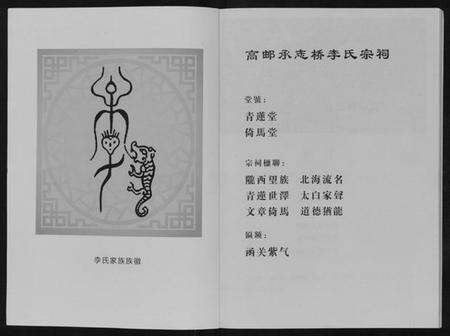 李氏家族族徽
高邮承志桥李氏宗祠
堂號：
青蓮堂
倚馬堂
宗祠楹聯：
隴西望族 北海流名
青蓮世澤 太白家聲
文章倚馬 道德猶龍
匾額：
函关紫气